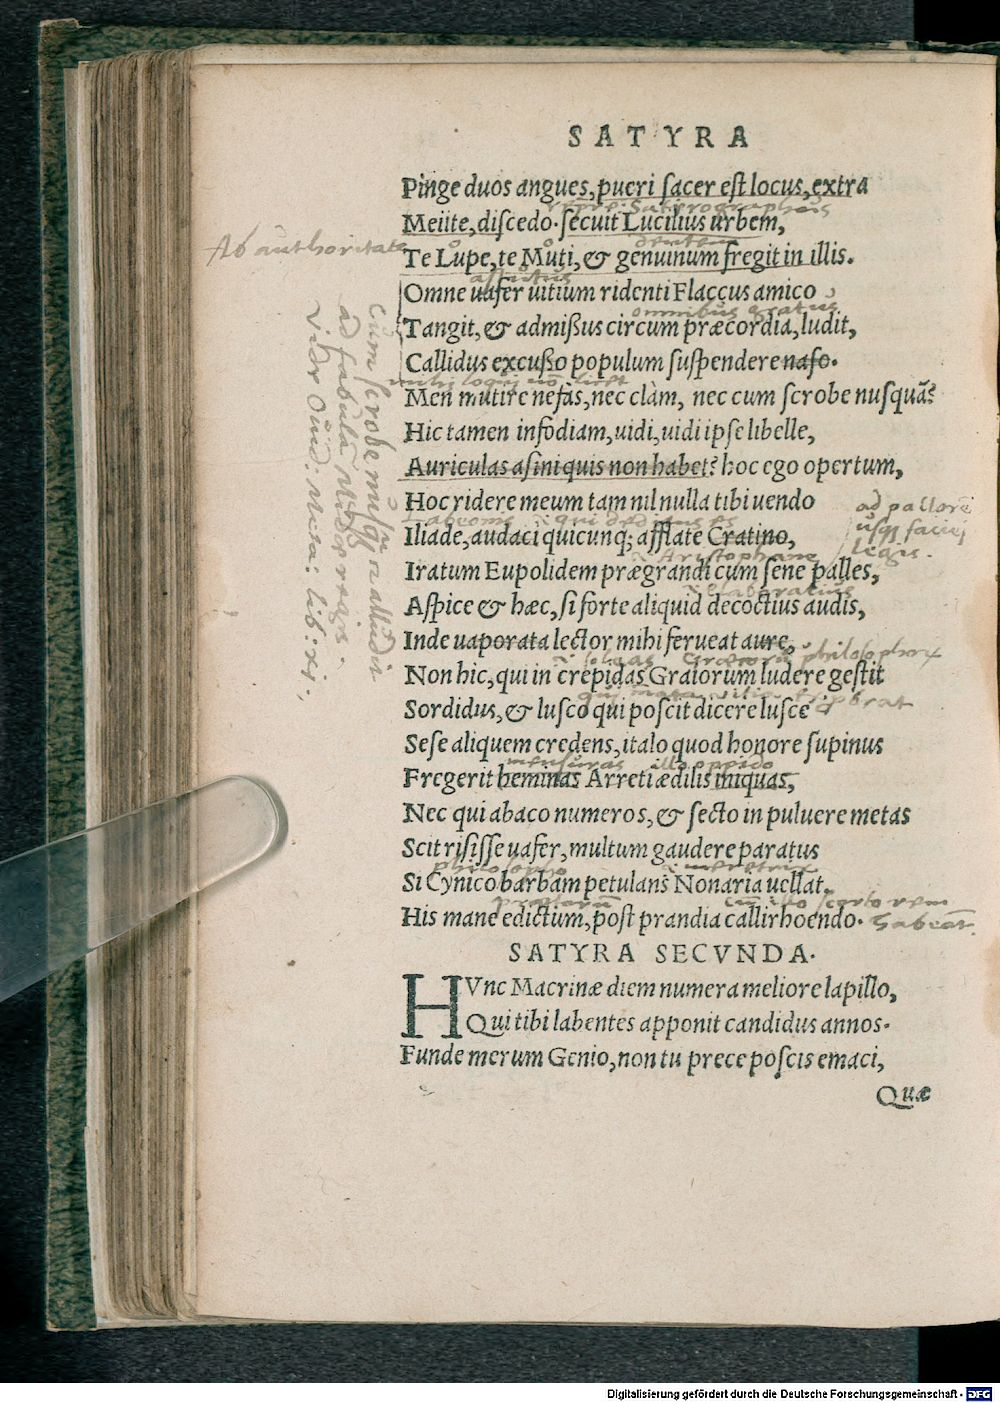 SATYRA
Pinge duos angues, pueri sacer est locus, extra
satyrographus
Meiite, discedo. secuit Lucilius urbem,
Ab authoritate
dentem
Te Lupe, te Muti, & genuinum fregit in illis.
astutus
Omne uafer uitium ridenti Flaccus amico
omnibus gratus
Tangit, & admißus circum præcordia, ludit,
Callidus excußo populum suspendere naso.
mihi loqui nō licet
Men mutire nefas, nec clàm, nec cum scrobe nusquã?
Hic tamen infodiam, uidi, uidi ipse libelle,
Auriculas asini quis non habet? hoc ego opertum,
Hoc ridere meum tam nil nulla tibi uendo
ad pallorē
usq faciei
legis.
Iliade, audaci quicunq; afflate Cratino,
Aristophane
Iratum Eupolidem prægrandi cum sene palles,
elaboratius
Aspice & hæc, si forte aliquid decoctius audis,
Inde uaporata lector mihi ferueat aure,
soleas
Non hic, qui in crepidas Graiorum ludere gestit
Sordidus, & lusco qui poscit dicere lusce
Sese aliquem credens, italo quod honore supinus
mensuras illo oppido
Fregerit heminas Arreti ædilis iniquas,
Nec qui abaco numeros, & secto in puluere metas
Scit risisse uafer, multum gaudere paratus
philosopho meretrix
Si Cynico barbam petulans Nonaria uellat.
His mane edictum, post prandia callirhoendo.
cum scrobe
ad fabulā Midæ regis.
vide Ouid: Meta: lib: xi.
SATYRA SECVNDA.
HVnc Macrinæ diem numera meliore lapillo,
Qui tibi labentes apponit candidus annos.
Funde merum Genio, non tu prece poscis emaci,
Quæ
Digitalisierung gefördert durch die Deutsche Forschungsgemeinschaft - DFG